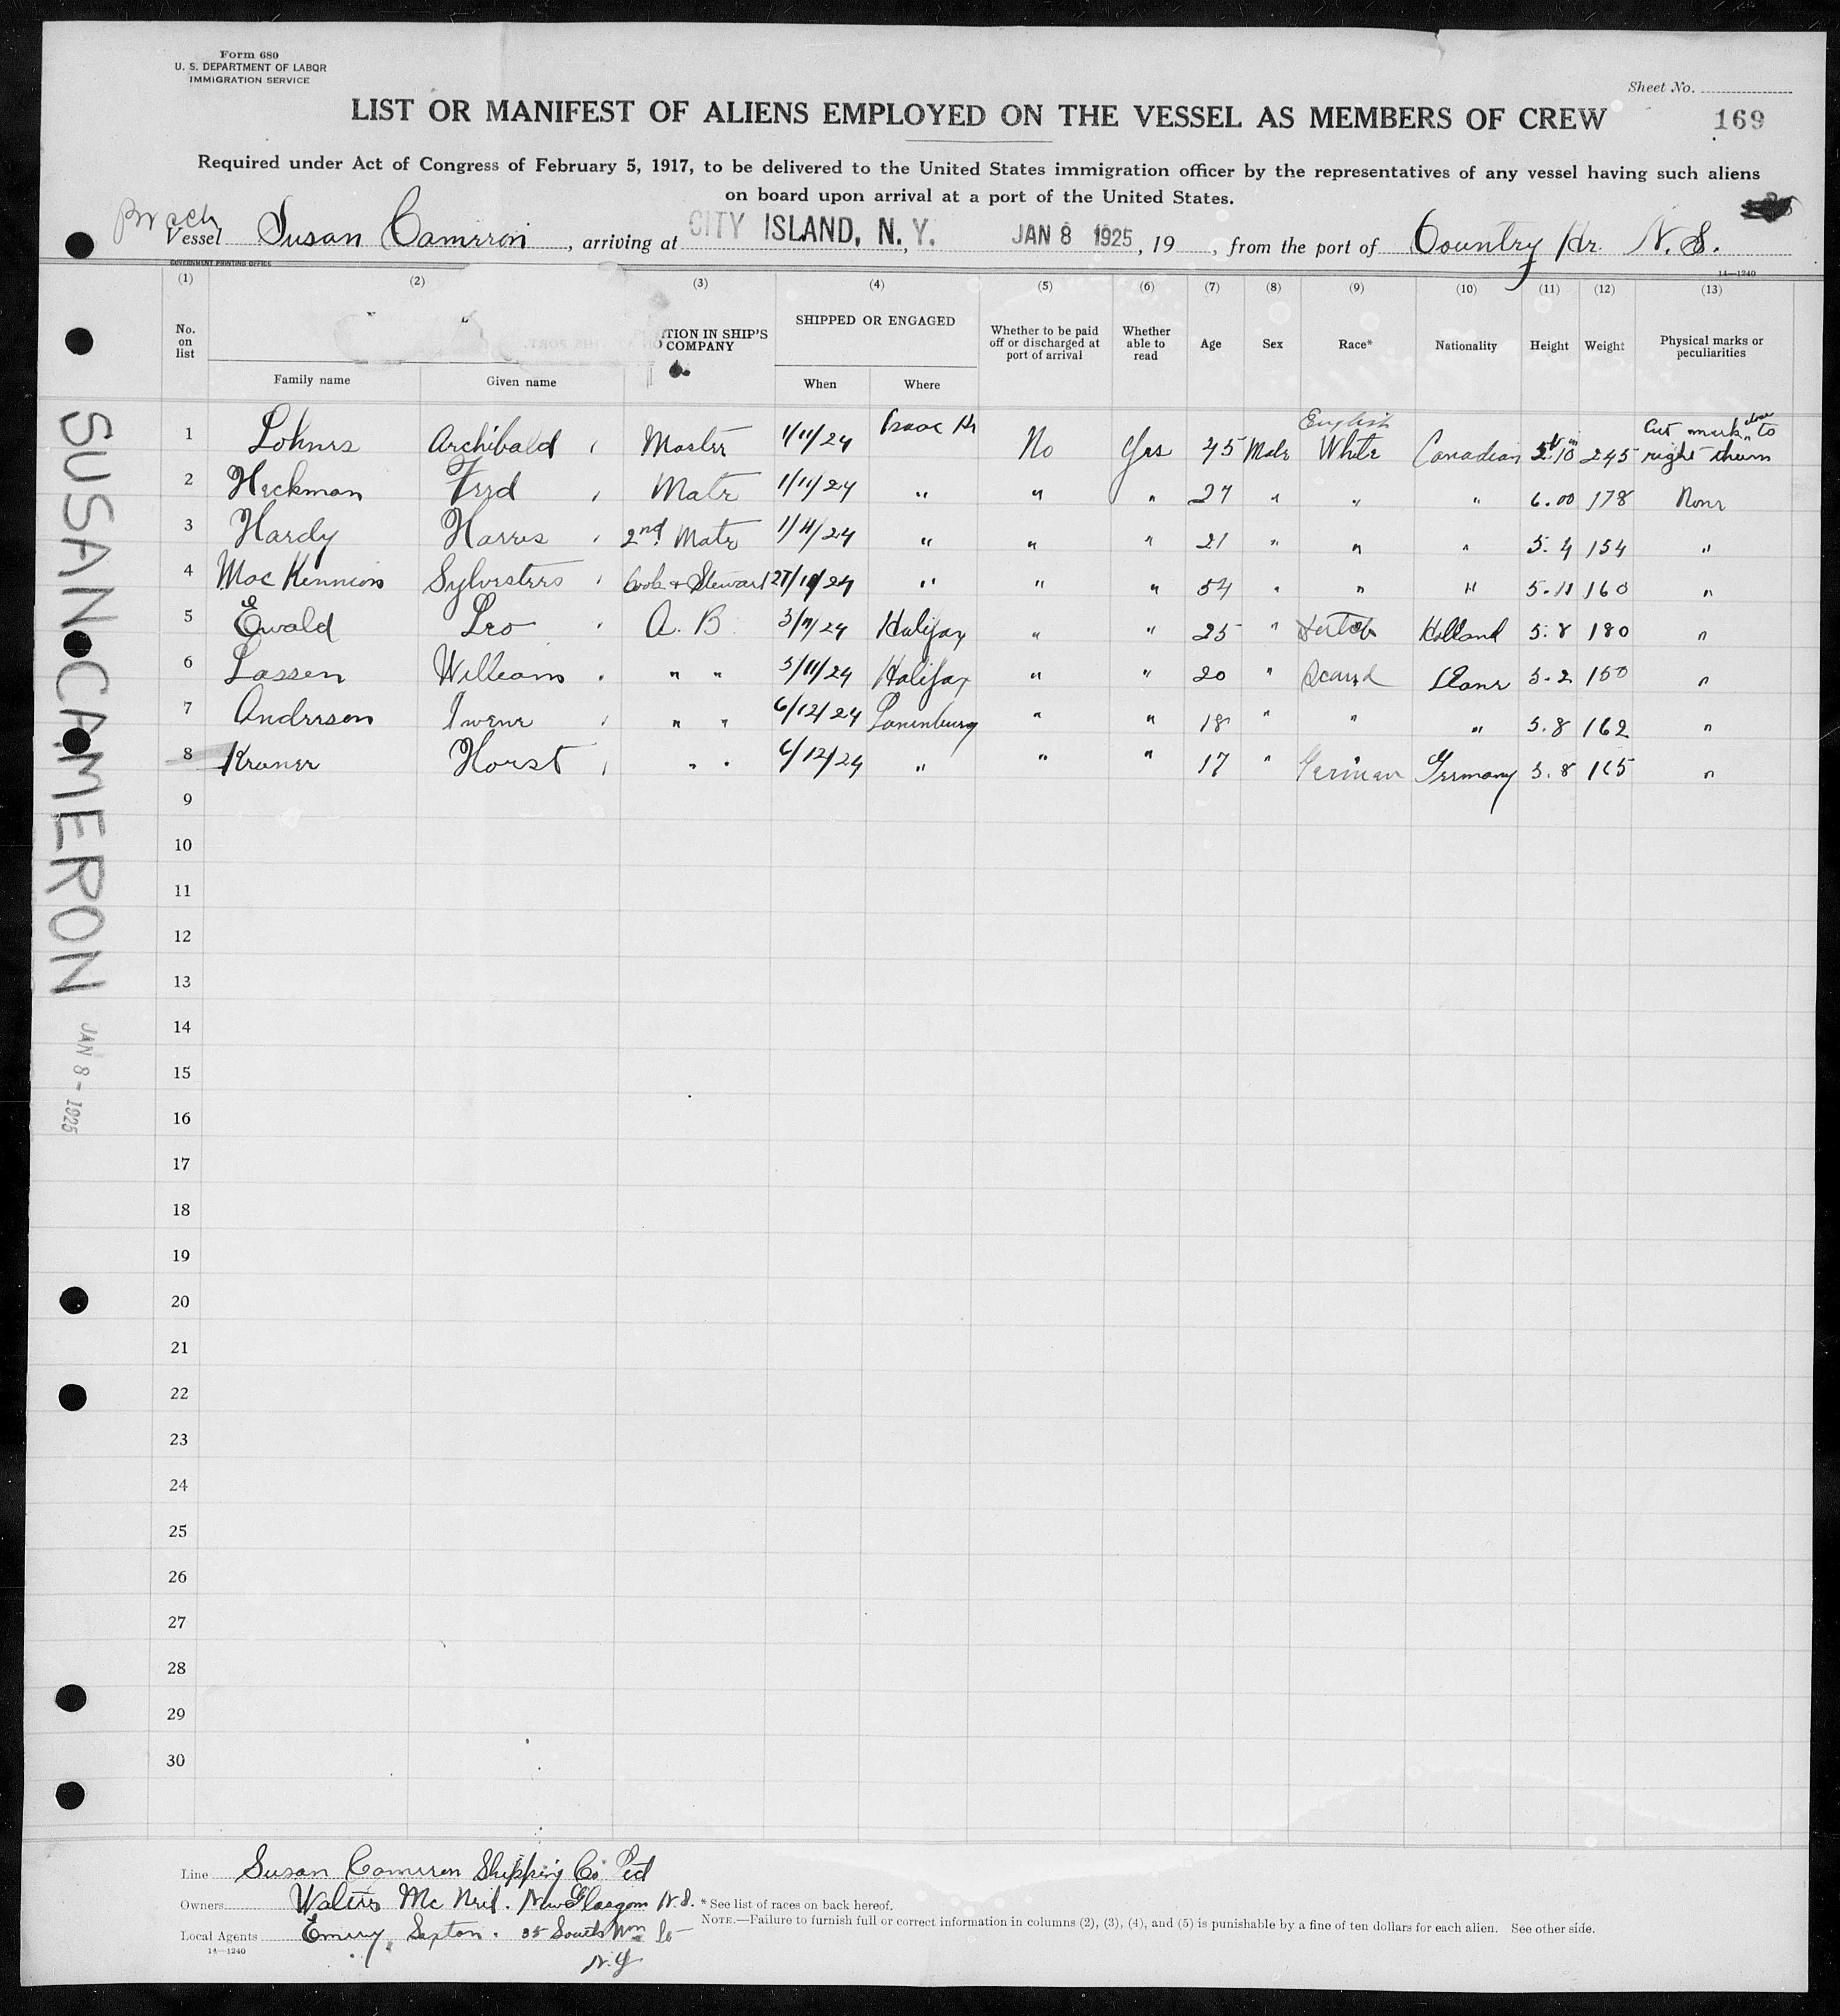 Form 680
U. S. DEPARTMENT OF LABOR
IMMIGRATION SERVICE
Sheet No.
LIST OR MANIFEST OF ALIENS EMPLOYED ON THE VESSEL AS MEMBERS OF CREW
169
Required under Act of Congress of February 5, 1917, to be delivered to the United States immigration officer by the representatives of any vessel having such aliens
on board upon arrival at a port of the United States.
Br sch
Vessel Susan Cameron, arriving at CITY ISLAND, N. Y. JAN 8 1925, 19, from the port of Country Hr. N. S.
GOVERNMENT PRINTING OFFICE
14—1240
(1) (2) (3) (4) (5) (6) (7) (8) (9) (10) (11) (12) (13)
No. on list
Family name
Given name
TION IN SHIP'S COMPANY
SHIPPED OR ENGAGED
When
Where
Whether to be paid off or discharged at port of arrival
Whether able to read
Age
Sex
Race*
Nationality
Height
Weight
Physical marks or peculiarities
1 Lohnes Archibald Master 1/11/24 Isaac Hr No Yes 45 Male English White Canadian 5 10 245 Cut mark to right
2 Heckman Fred Mate 1/11/24 " " " 27 " " " 6.00 178 None
3 Hardy Harris 2nd Mate 1/11/24 " " " 21 " " " 5.4 154 "
4 Mac Kinnion Sylvesters Cook & Stewart 27/10/24 " " " 54 " " " 5.11 160 "
5 Ewald Leo A. B 3/11/24 Halifax " " 25 " Holland 5.8 180 "
6 Lassen William " " 3/11/24 Halifax " " 20 " Scand Dane 5.2 150 "
7 Anderson " " 6/12/24 Lunenburg " " 18 " " " 5.8 162 "
8 Horst " " 6/12/24 " " " 17 " German Germany 5.8 165 "
9
10
11
12
13
14
15
16
17
18
19
20
21
22
23
24
25
26
27
28
29
30
SUSAN CAMERON
JAN 8 - 1925
Line Susan Cameron Shipping Co Ltd
Owners Walter Mc Neil. New Glasgow N.S.
*See list of races on back hereof.
NOTE.—Failure to furnish full or correct information in columns (2), (3), (4), and (5) is punishable by a fine of ten dollars for each alien. See other side.
Local Agents Emery, Sexton. 35 South Wm St
N.Y
14—1240